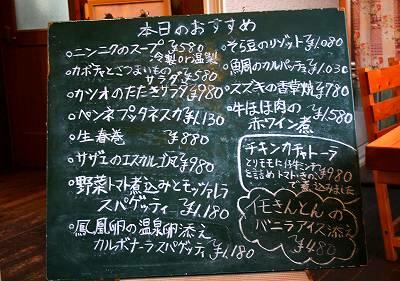 本日のおすすめ
・ニンニクのスープ ¥580
冷製or温製
・カボチャとさつまいもの
サラダ ¥580
・カツオのたたきサラダ ¥980
・ペンネプッタネスカ ¥1,130
・生春巻 ¥880
・サザエのエスカルゴ風 ¥980
・野菜トマト煮込みとモッツァレラ
スパゲッティ ¥1,180
・鳳凰卵の温泉卵添え
カルボナーラスパゲッティ ¥1,180
・そら豆のリゾット ¥1,080
・鯛のカルパッチョ ¥1,030
・スズキの香草焼 ¥780
・牛ほほ肉の ¥1,580
赤ワイン煮
チキンカチャトーラ
とりモモに仔牛ミンチ
を詰めトマト ¥980
で煮込みました
芋きんとんの
バニラアイス添え
¥480